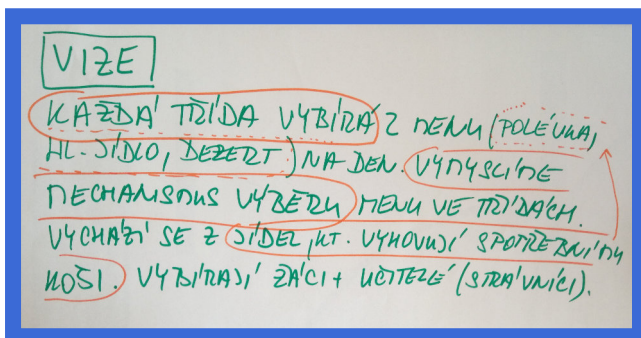 VIZE
KAŽDÁ TŘÍDA VYBÍRÁ Z MENU (POLÉVKA,
HL. JÍDLO, DEZERT) NA DEN. VYMYSLÍME
MECHANISMUS VÝBĚRU MENU VE TŘÍDÁCH.
VYCHÁZÍ SE Z JÍDEL, KT. VYHOVUJÍ SPOTŘEBNÍMU
KOŠI. VYBÍRAJÍ ŽÁCI + UČITELÉ (STRÁVNÍCI).